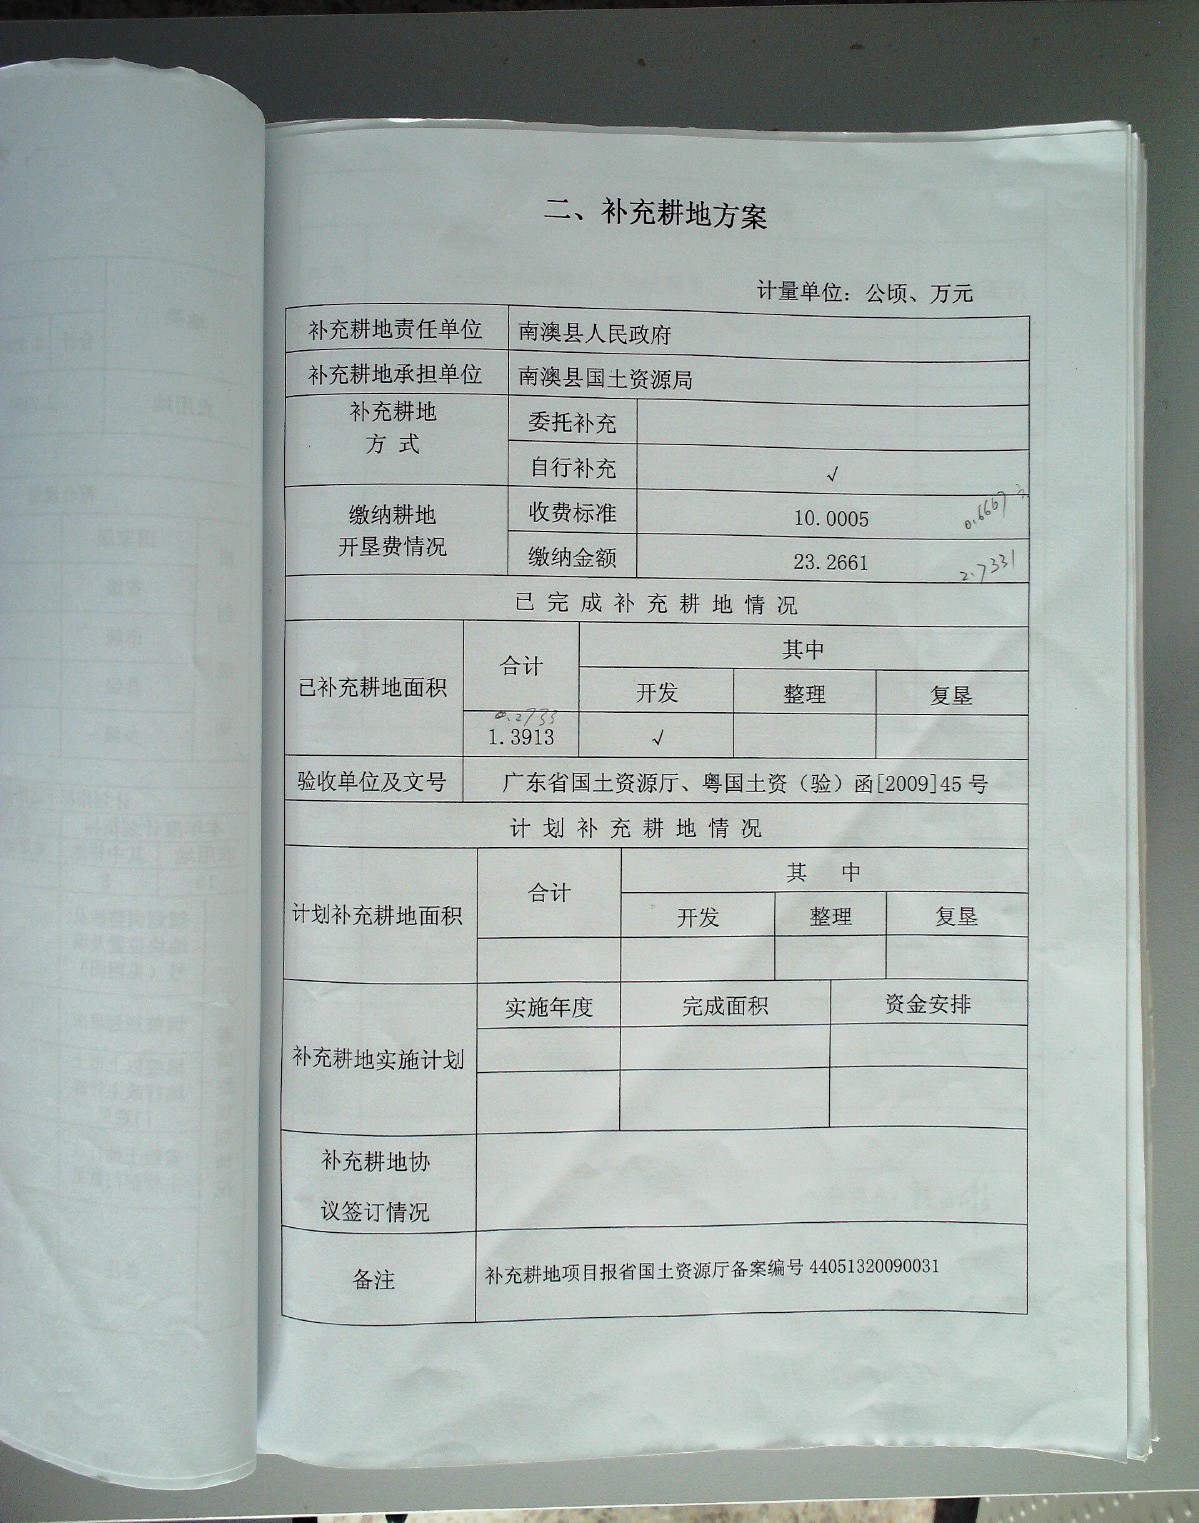 二、补充耕地方案
计量单位：公顷、万元
补充耕地责任单位 南澳县人民政府
补充耕地承担单位 南澳县国土资源局
补充耕地
方 式
委托补充
自行补充 √
缴纳耕地
开垦费情况
收费标准 10.0005 0.6667
缴纳金额 23.2661 2.7331
已完成补充耕地情况
已补充耕地面积
合计
其中
开发 整理 复垦
0.2733
1.3913 √
验收单位及文号 广东省国土资源厅、粤国土资（验）函[2009]45号
计划补充耕地情况
计划补充耕地面积
合计
其 中
开发 整理 复垦
补充耕地实施计划
实施年度 完成面积 资金安排
补充耕地协
议签订情况
备注 补充耕地项目报省国土资源厅备案编号44051320090031